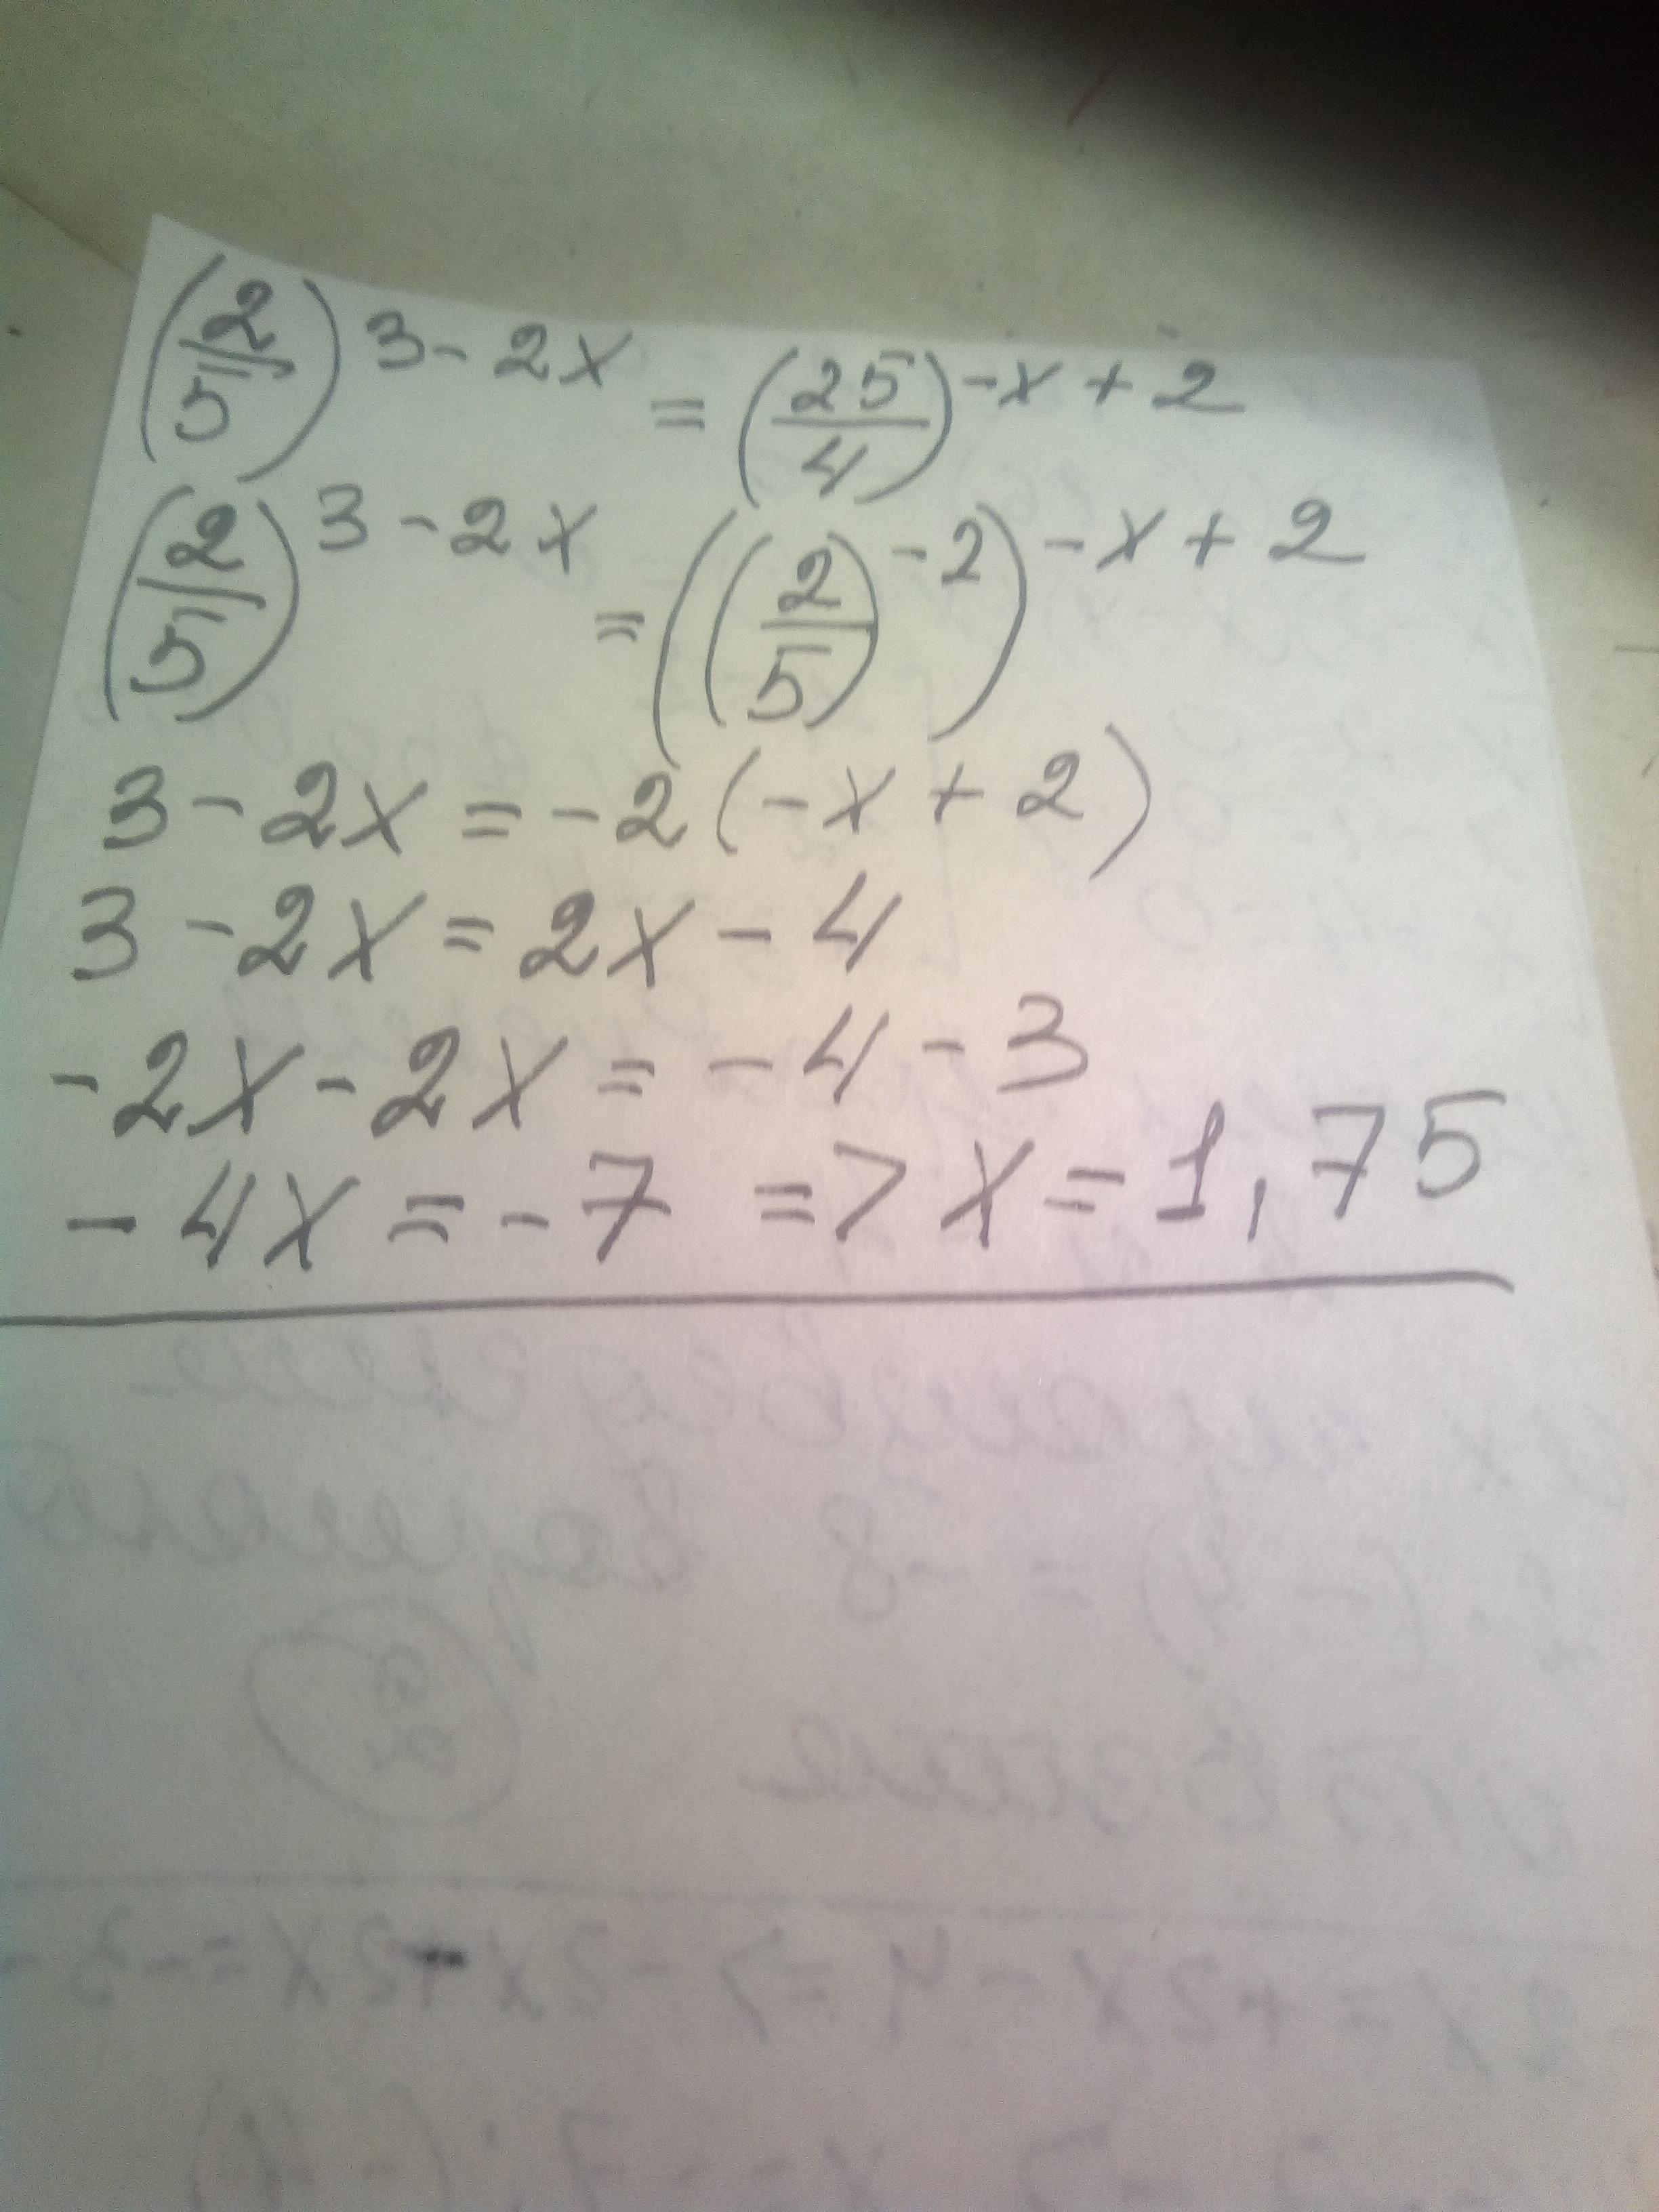 (2/5)^3-2x = (25/4)^-x+2
(2/5)^3-2x = ((2/5)^-2)^-x+2
3-2x=-2(-x+2)
3-2x=2x-4
-2x-2x=-4-3
-4x=-7 => x=1,75